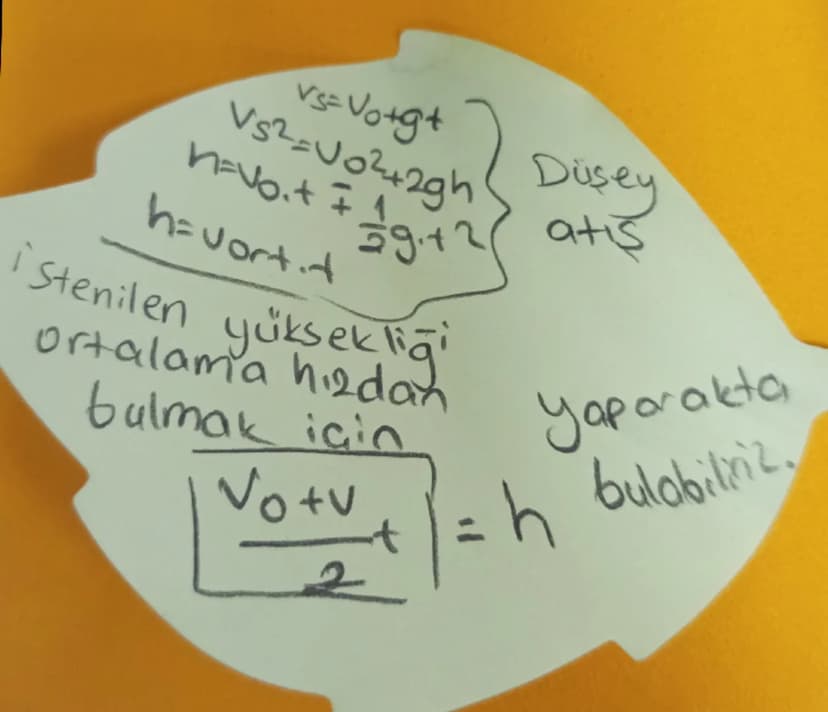 Vs=Vo+gt
Vs2=Vo2+2gh
h=Vo.t ∓ 1/2 g.t2
h=Vort.t
Düşey
atış
istenilen yüksekliği
ortalama hızdan
bulmak için
Vo+V/2 t = h
yaparakta
bulabiliriz.